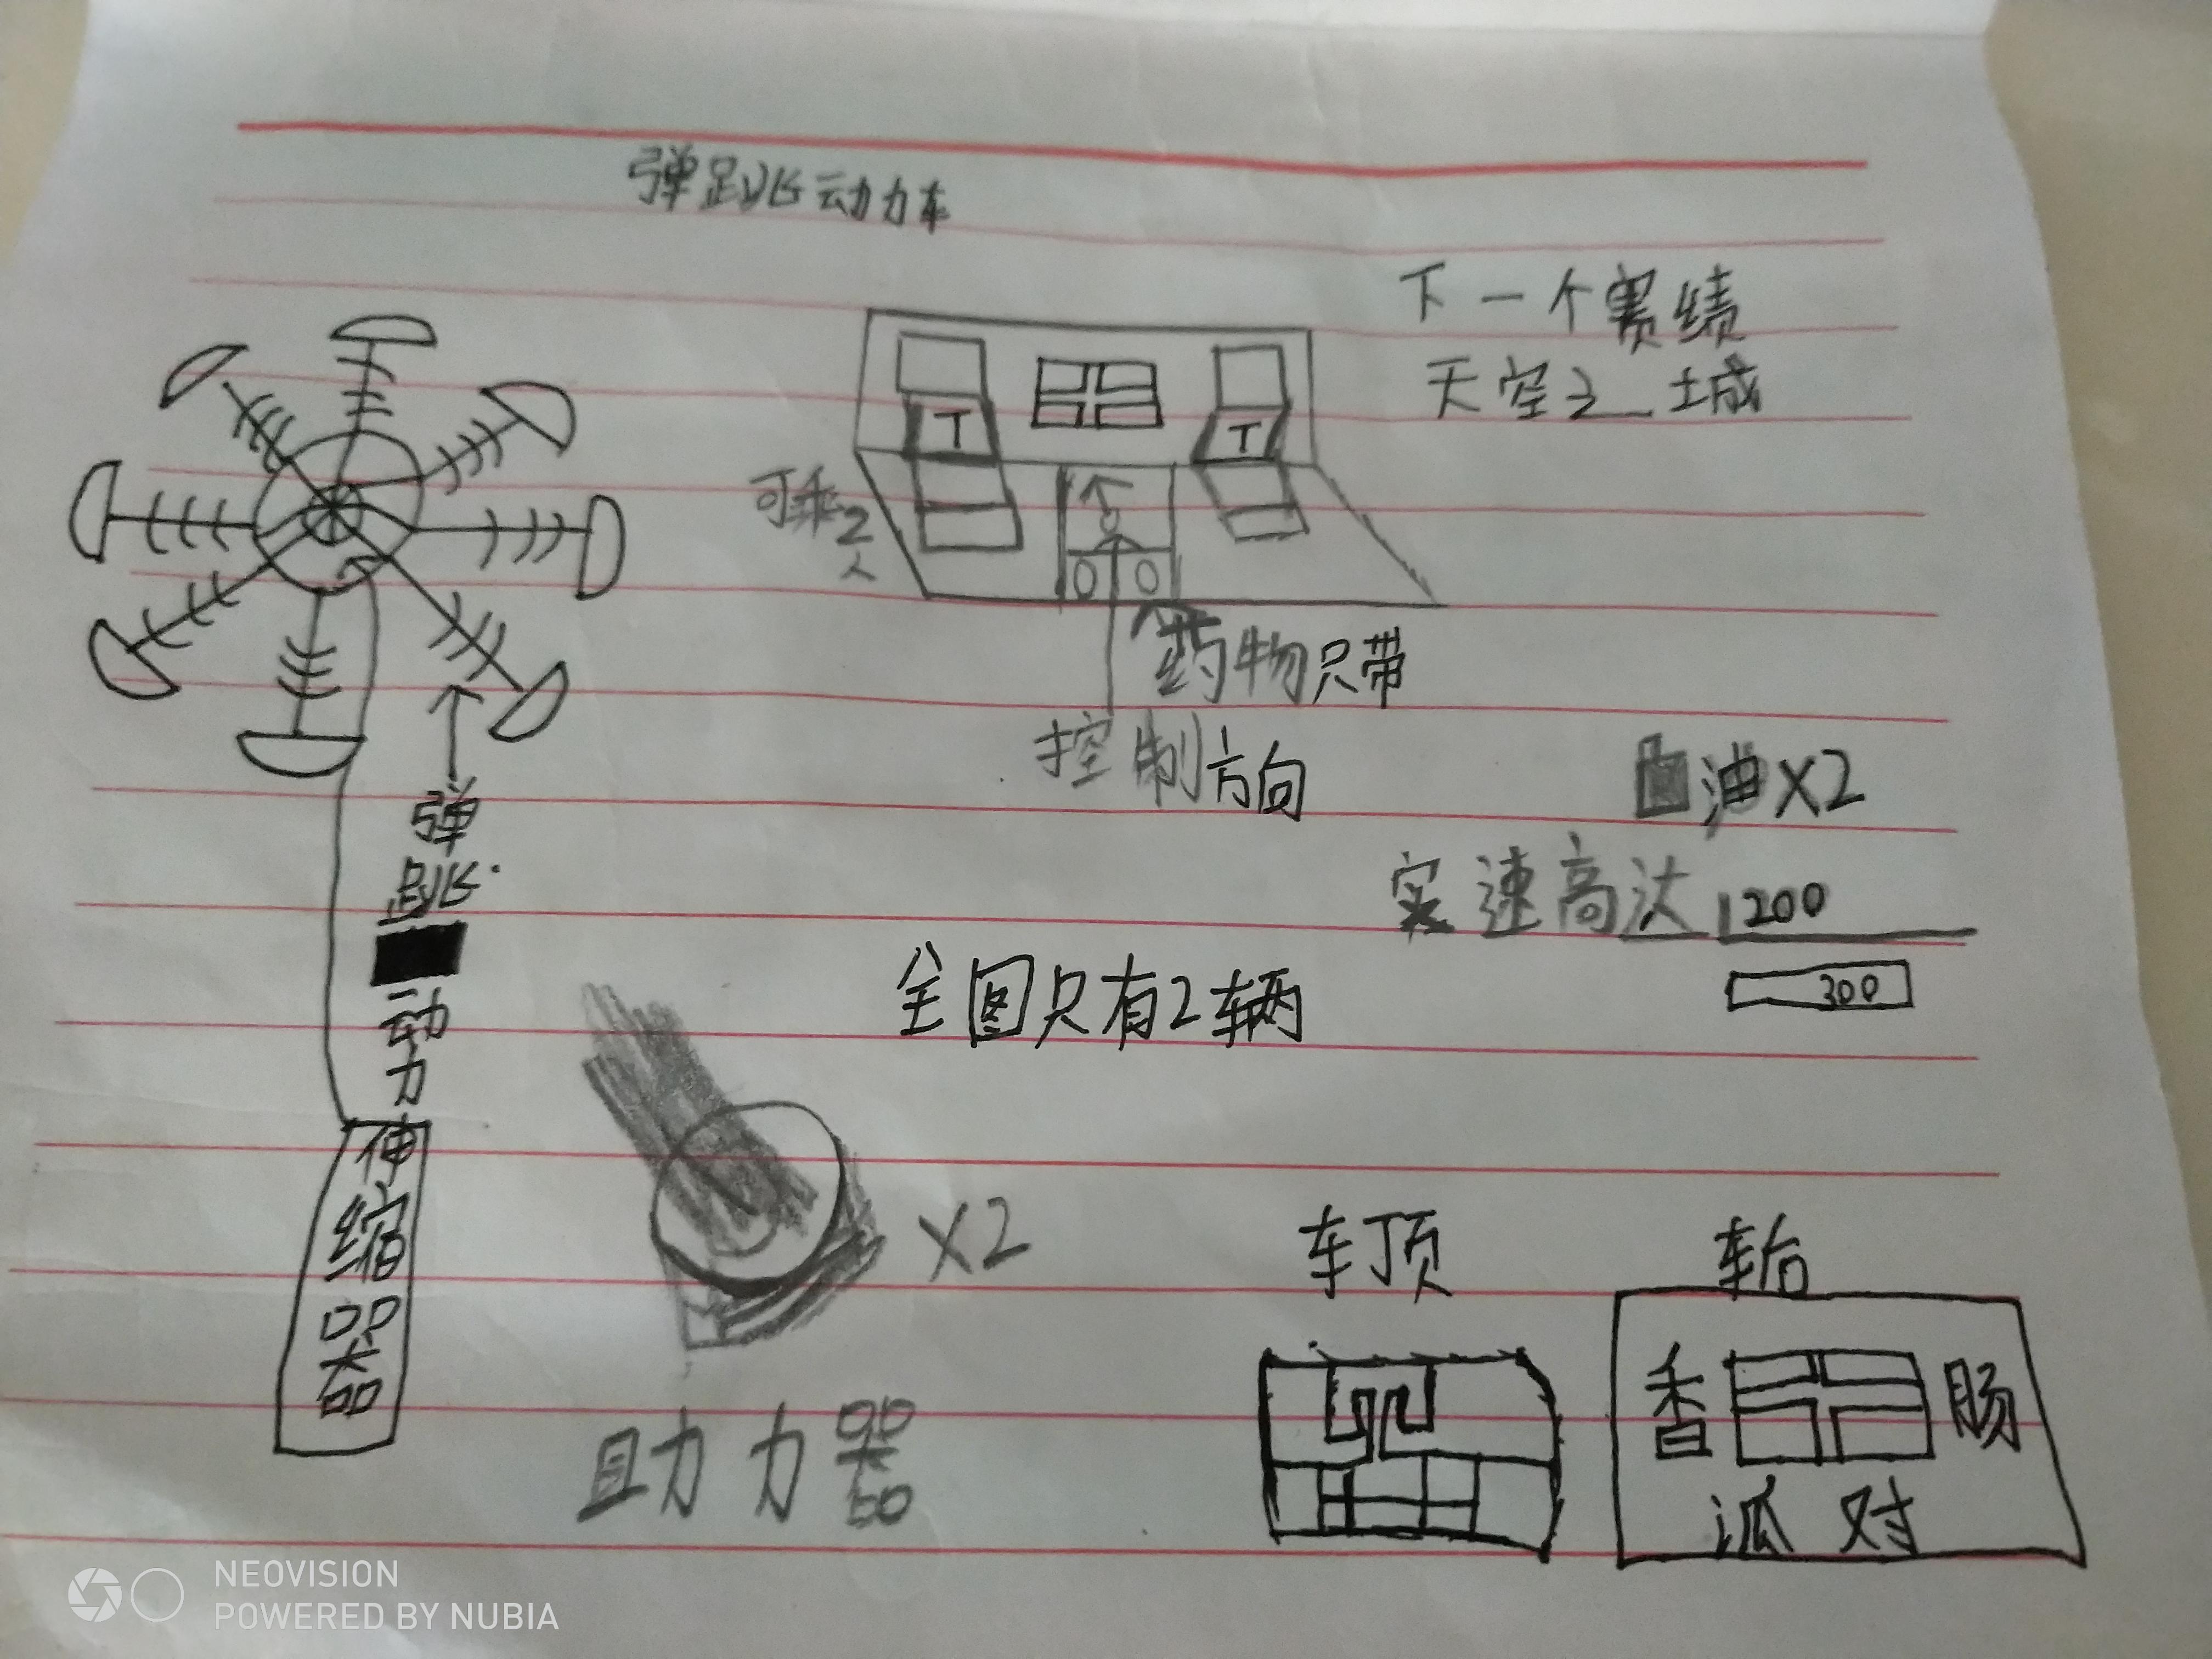 弹跳动力车
下一个赛绩
天空之城
T
T
可乘2人
药物只带
控制方向
油X2
实速高达1200
300
弹跳动力
全图只有2辆
伸缩器
X2
助力器
车顶
车后
香肠
派对
NEOVISION
POWERED BY NUBIA